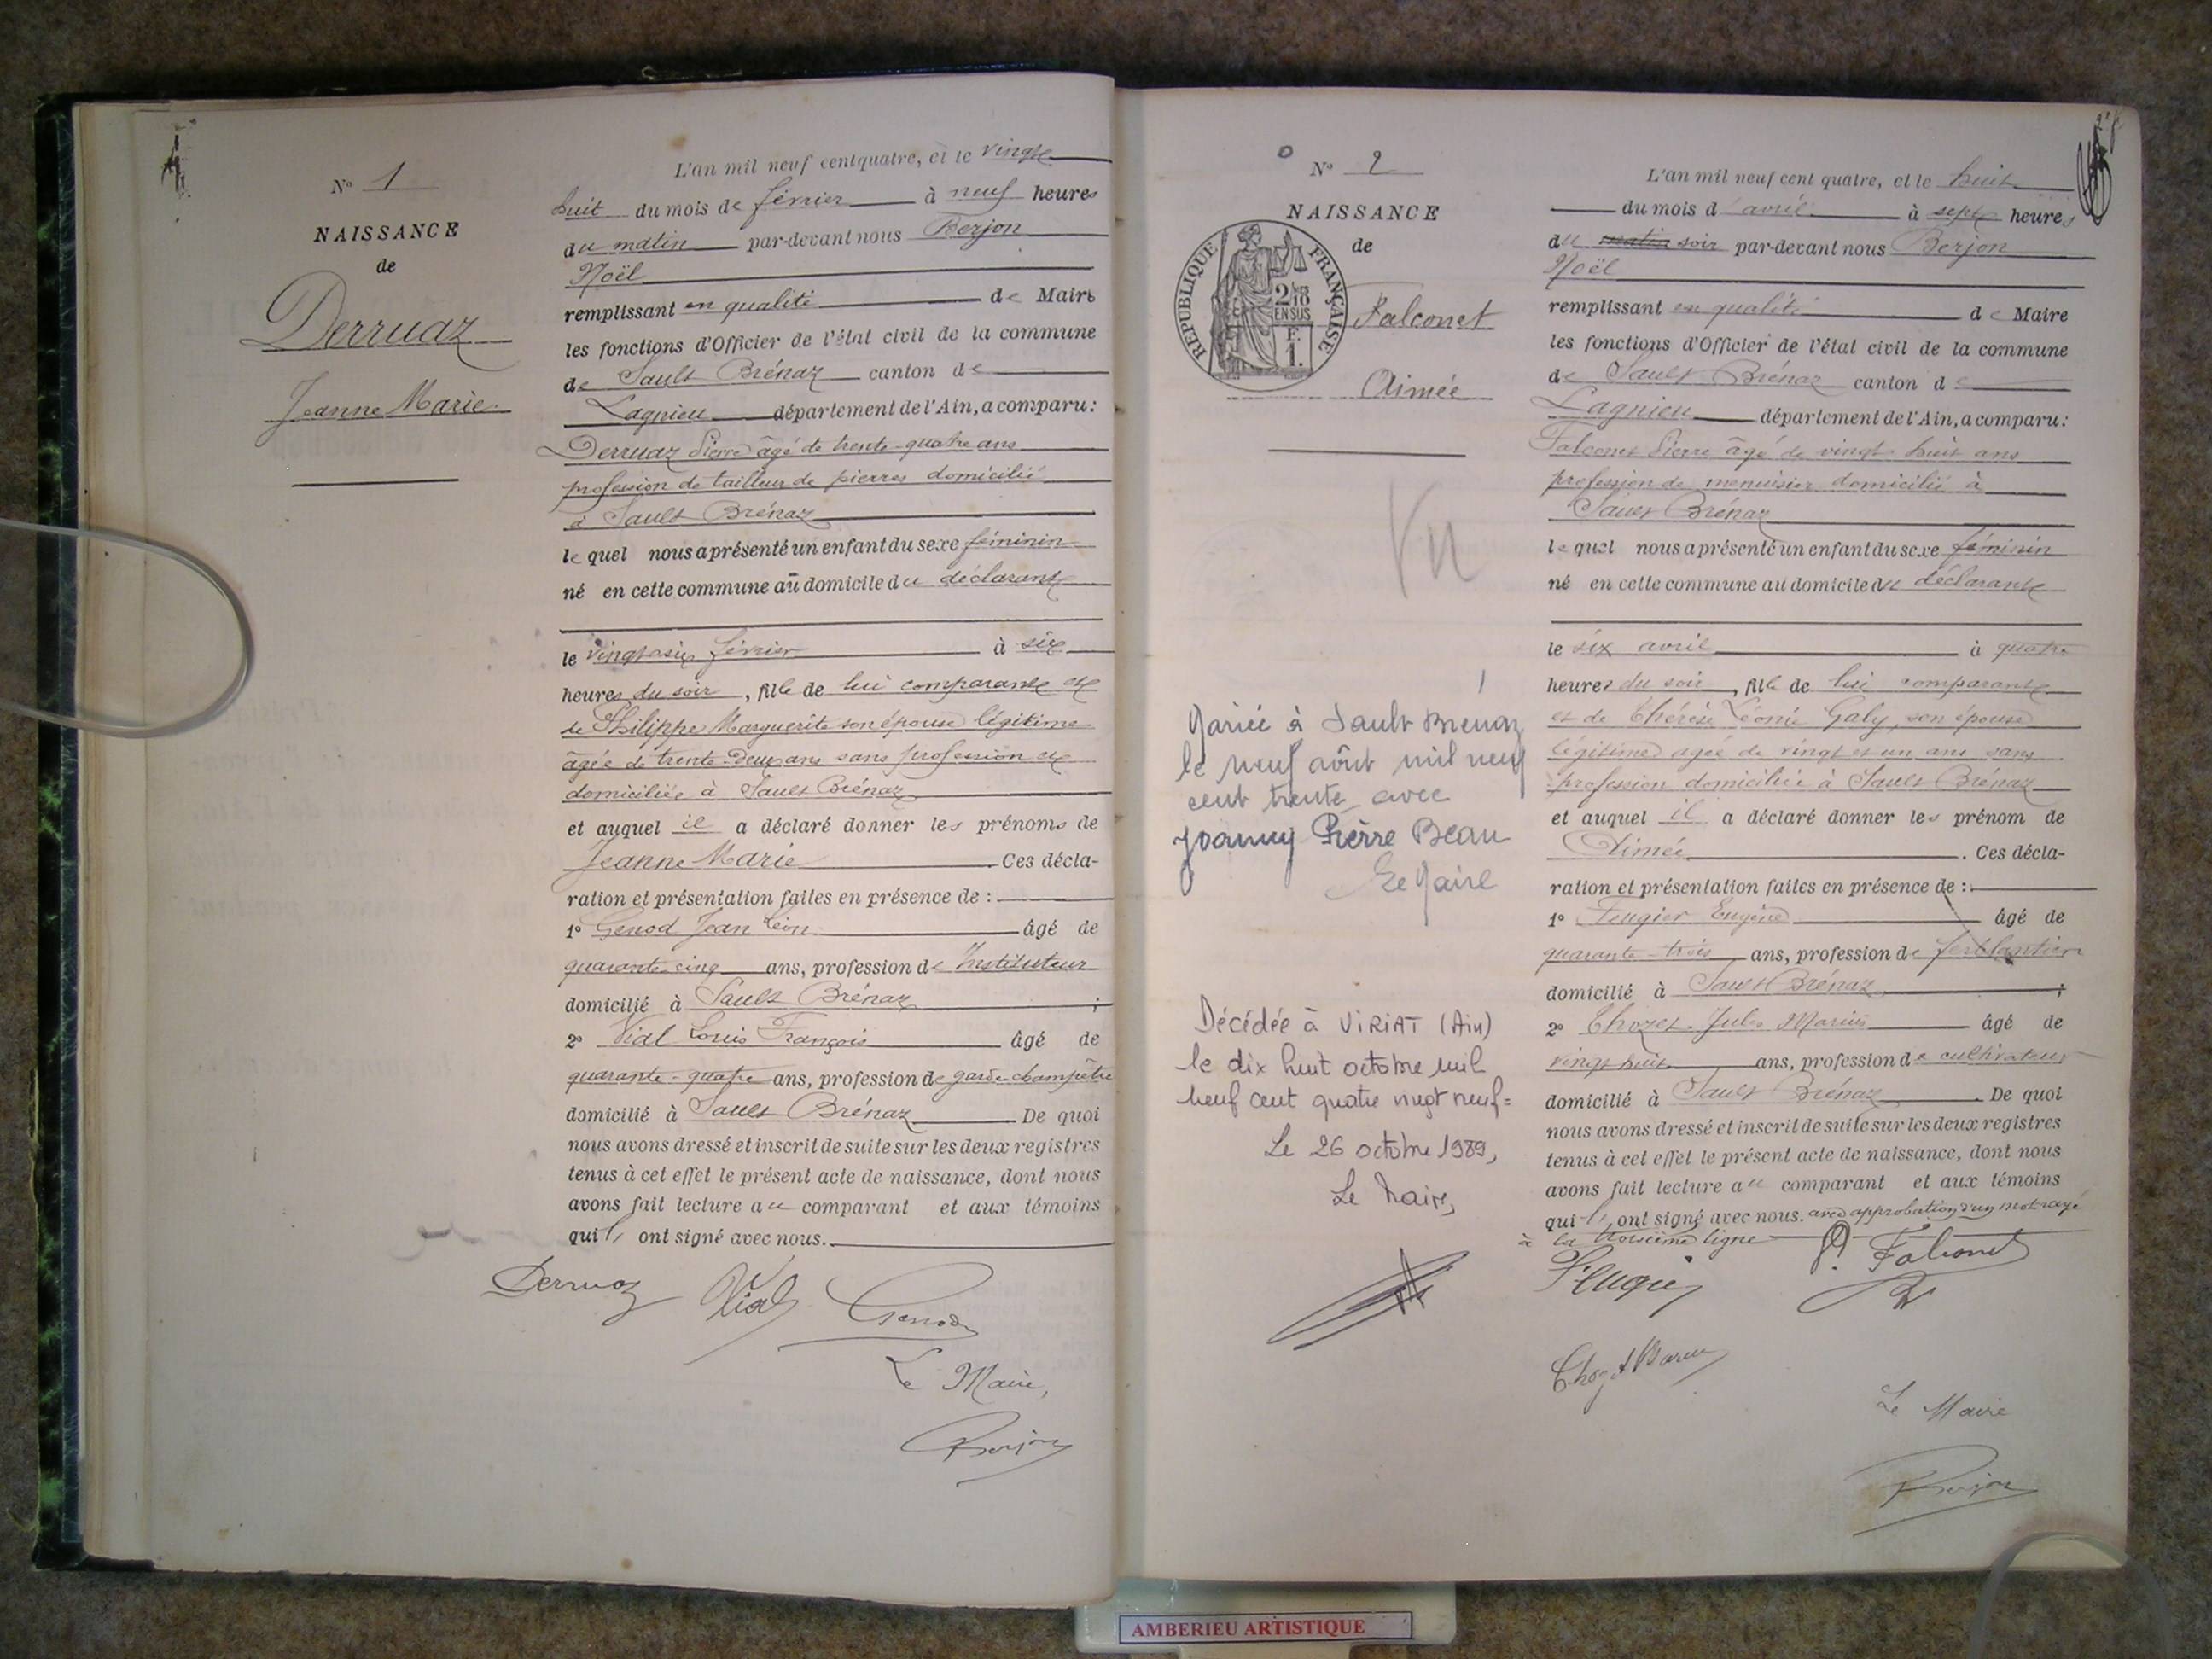 N° 1
NAISSANCE
de
Derruaz
Jeanne Marie
L'an mil neuf cent quatre, et le vingt
huit du mois de février à neuf heures
du matin par-devant nous Berjon
Noël
remplissant en qualité de Maire
les fonctions d'Officier de l'état civil de la commune
de Sault Brénaz canton de
Lagnieu département de l'Ain, a comparu :
Derruaz Pierre âgé de trente-quatre ans
profession de tailleur de pierres domicilié
à Sault Brénaz
lequel nous a présenté un enfant du sexe féminin
né en cette commune au domicile du déclarant
le vingt-six février à six
heures du soir, fille de lui comparant et
de Philippe Marguerite son épouse légitime
âgée de trente-deux ans sans profession et
domiciliée à Sault Brénaz
et auquel il a déclaré donner les prénoms de
Jeanne Marie. Ces décla-
ration et présentation faites en présence de :
1° Genod Jean Léon âgé de
quarante-cinq ans, profession de Instituteur
domicilié à Sault Brénaz ;
2° Vial Louis François âgé de
quarante-quatre ans, profession de garde-champêtre
domicilié à Sault Brénaz. De quoi
nous avons dressé et inscrit de suite sur les deux registres
tenus à cet effet le présent acte de naissance, dont nous
avons fait lecture au comparant et aux témoins
qui ont signé avec nous.
Derruaz Vial Genod
Le Maire,
Berjon
N° 2
NAISSANCE
de
RÉPUBLIQUE FRANÇAISE
2/10 EN SUS
F. 1.
Falconet
Aimée
Vu
Mariée à Sault Brenaz
le neuf août mil neuf
cent trente avec
Joanny Pierre Beau
Le Maire
Décédée à VIRIAT (Ain)
le dix huit octobre mil
neuf cent quatre vingt neuf=
Le 26 octobre 1989,
Le Maire,
L'an mil neuf cent quatre, et le huit
du mois d'avril à sept heures
du matin soir par-devant nous Berjon
Noël
remplissant en qualité de Maire
les fonctions d'Officier de l'état civil de la commune
de Sault Brénaz canton de
Lagnieu département de l'Ain, a comparu :
Falconet Pierre âgé de vingt-huit ans
profession de menuisier domicilié à
Sault Brénaz
lequel nous a présenté un enfant du sexe féminin
né en cette commune au domicile du déclarant
le six avril à quatre
heures du soir, fille de lui comparant
et de Thérèse Léonie Galy, son épouse
légitime agée de vingt et un ans sans
profession domiciliée à Sault Brénaz
et auquel il a déclaré donner les prénom de
Aimée. Ces décla-
ration et présentation faites en présence de :
1° Feugier Eugène âgé de
quarante-trois ans, profession de ferblantier
domicilié à Sault Brénaz ;
2° Chozet Jules Marius âgé de
vingt huit ans, profession de cultivateur
domicilié à Sault Brénaz. De quoi
nous avons dressé et inscrit de suite sur les deux registres
tenus à cet effet le présent acte de naissance, dont nous
avons fait lecture au comparant et aux témoins
qui ont signé avec nous. avec approbation d'un mot rayé
à la troisième ligne
Feugier P. Falconet
Chozet Marius
Le Maire
Berjon
AMBERIEU ARTISTIQUE